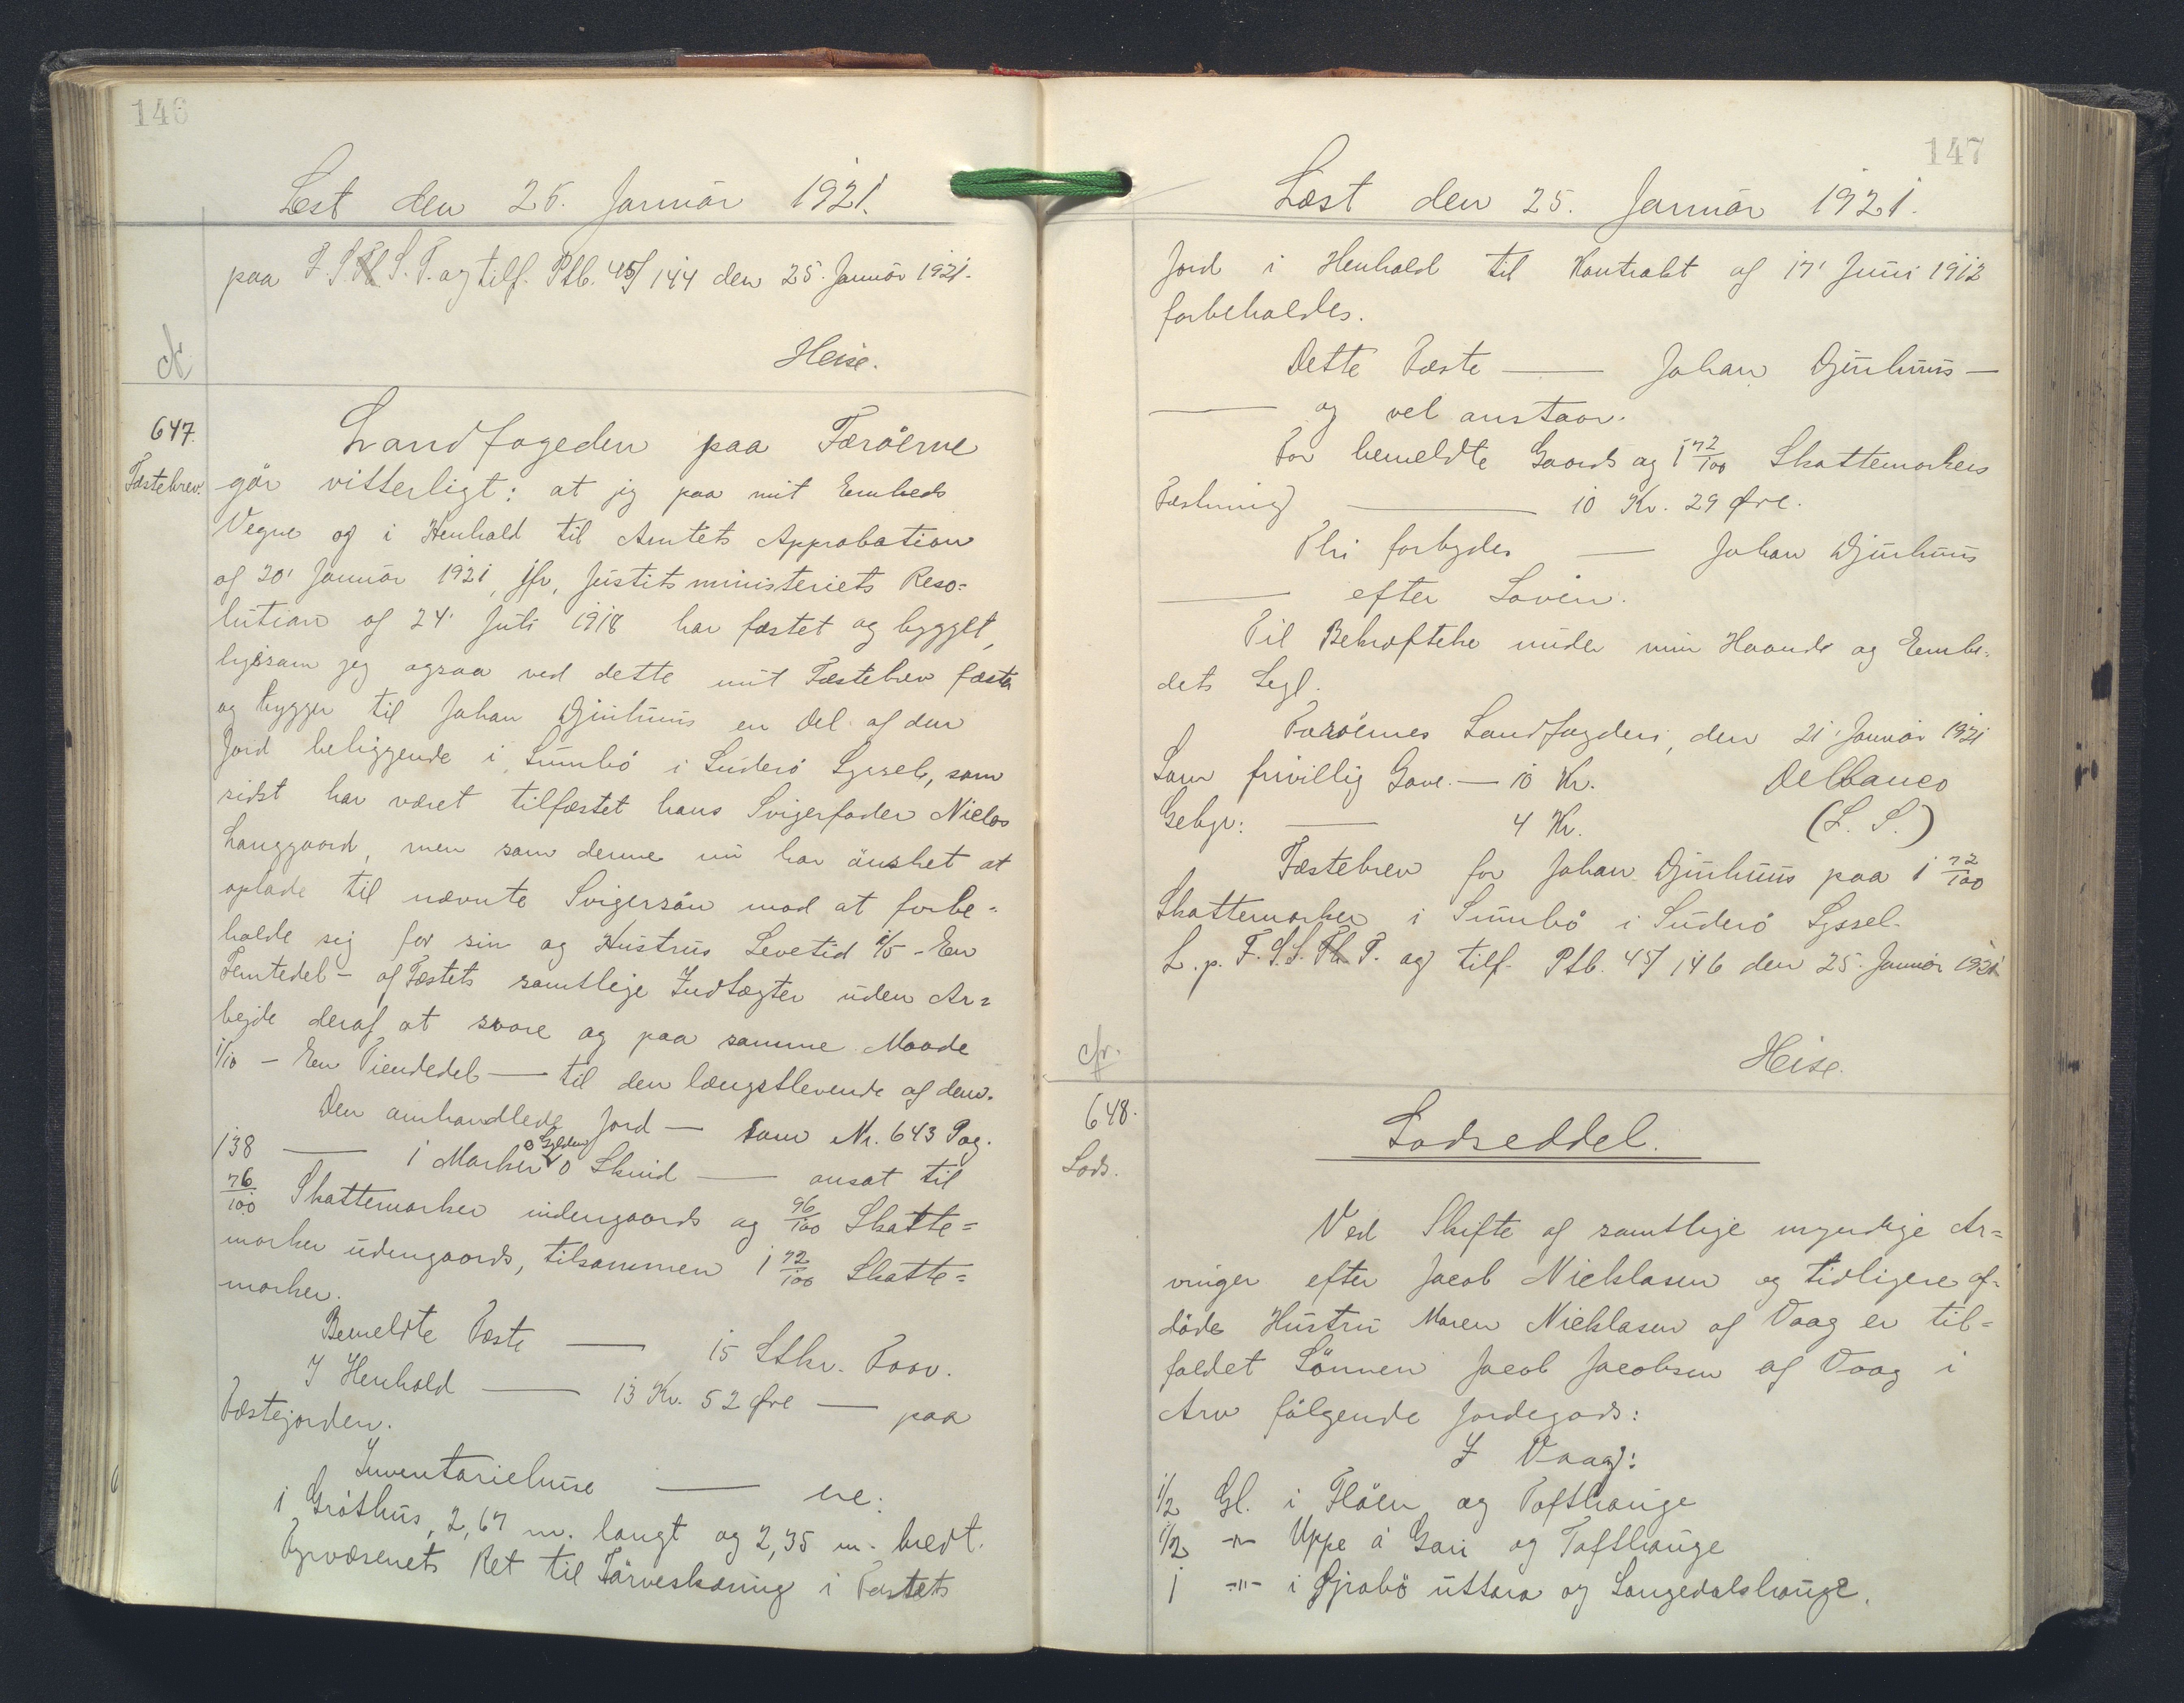 146
Læst den 25. Januar 1921.
paa F. S. S. T. og tilf. Ptb. 45/144 den 25. Januar 1921.
Heise.
cfr.
647.
Fæstebrev.
Landfogeden paa Færöerne
gör vitterligt: at jeg paa mit Embeds
Vegne og i Henhold til Amtets Approbation
af 20' Januar 1921, jfr, Justitsministeriets Reso=
lution af 24' Juli 1918 har fæstet og bygget,
ligesom jeg ogsaa ved dette mit Fæstebrev fæster
og bygger til Johan Djurhuus en Del af den
Jord beliggende i Sumbö i Suderö Syssel, som
sidst har været tilfæstet hans Svigerfader Niclas
Langgaard, men som denne nu har önsket at
oplade til nævnte Svigersön mod at forbe=
holde sig for sin og Hustrus Levetid 1/5 - En
Femtedel - af Fæstets samtlige Indtægter uden Ar=
bejde deraf at svare og paa samme Maade
1/10 - En Tiendedel — til den længstlevende af dem.
Den omhandlede Jord — som Nr. 643 Pag.
138 — 1 Marker 0 Gylden 0 Skind — ansat til
76/100 Skattemarker indengaards og 96/100 Skatte=
marker udengaards, tilsammen 1 72/100 Skatte=
marker.
Bemeldte Fæste — 15 Stkr. Faar.
I Henhold — 13 Kr. 52 Øre — paa
Fæstejorden.
Inventariehuse — ere:
1 Gröthus, 2,67 m. langt og 2,35 m. bredt.
Fyrvæsenets Ret til Törveskæring i Fæstets
147
Læst den 25. Januar 1921.
Jord i Henhold til Kontrakt af 17' Juni 1912
forbeholdes.
Dette Fæste — Johan Djurhuus —
— og vel anstaar.
For bemeldte Gaards og 1 72/100 Skattemarkers
Fæstning — 10 Kr. 29 Øre.
Thi forbydes — Johan Djurhuus
— efter Loven.
Til Bekræftelse under min Haand og Embe-
dets Segl.
Færöernes Landfogderi, den 21' Januar 1921
Som frivillig Gave. — 10 Kr. Delbanco
Gebyr: — 4 Kr. (L. S.)
Fæstebrev for Johan Djurhuus paa 1 72/100
Skattemarker i Sumbö i Suderö Syssel.
L. p. F. S. S. T. og tilf. Ptb. 45/146 den 25. Januar 1921
Heise.
cfr.
648.
Lods.
Lodseddel.
Ved Skifte af samtlige myndige Ar=
vinger efter Jacob Nicklasen og tidligere af-
döde Hustru Maren Nicklasen af Vaag er til=
faldet Sönnen Jacob Jacobsen af Vaag i
Arv fölgende Jordegods:
I Vaag:
1/2 Gl. i Flöen og Tofthauge
1/2 -"- Uppe á Gari og Tofthauge
1 -"- i Gjrabö uttara og Langedalshauge.